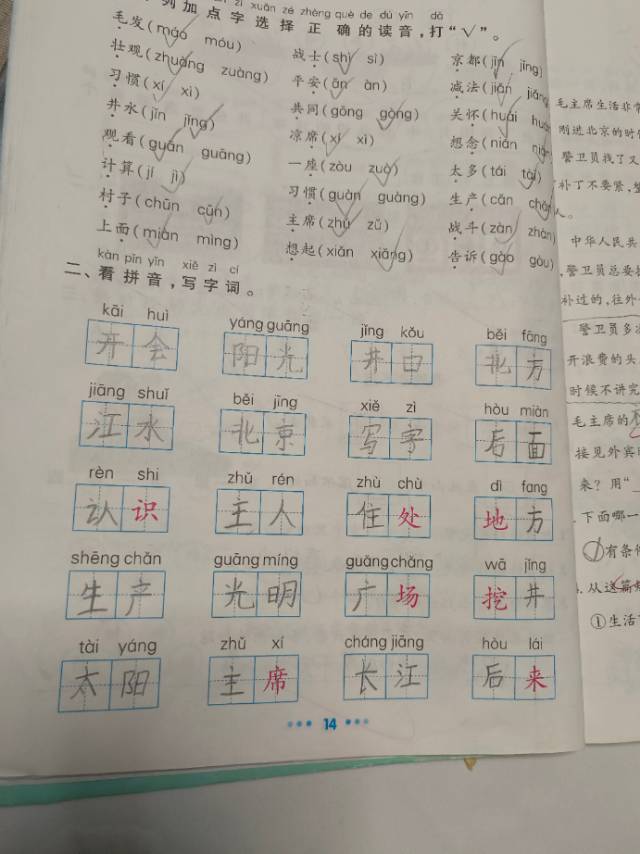 列加点字选择正确的读音,打“√”。
zì xuǎn zé zhèng què de dú yīn dǎ
毛发(máo móu) 战士(shì sì) 京都(jīn jīng)
壮观(zhuàng zuàng) 平安(ān àn) 减法(jiǎn jiǎng)
习惯(xí xì) 共同(gōng gòng) 关怀(huái
井水(jǐn jǐng) 凉席(xí xì) 想念(niàn
观看(guān guāng) 一座(zòu zuò) 太多(tái tài)
计算(jí jì) 习惯(guàn guàng) 生产(cǎn chǎn)
村子(chūn cūn) 主席(zhǔ zǔ) 战斗(zàn zhàn)
上面(miàn mìng) 想起(xiǎn xiǎng) 告诉(gào gòu)
kàn pīn yīn xiě zì cí
二、看拼音,写字词。
kāi huì yáng guāng jǐng kǒu běi fāng
开会 阳光 井口 北方
jiāng shuǐ běi jīng xiě zì hòu miàn
江水 北京 写字 后面
rèn shi zhǔ rén zhù chù dì fang
认识 主人 住处 地方
shēng chǎn guāng míng guǎng chǎng wā jǐng
生产 光明 广场 挖井
tài yáng zhǔ xí cháng jiāng hòu lái
太阳 主席 长江 后来
14
毛主席生活非常
刚进北京的时
警卫员找了又
补了不要紧,
人。
中华人民共
警卫员总要
补过的,往外
警卫员多
开浪费的头
时候不讲究
毛主席的
接见外宾
来?用“
下面哪一
①有条
从这篇
①生活